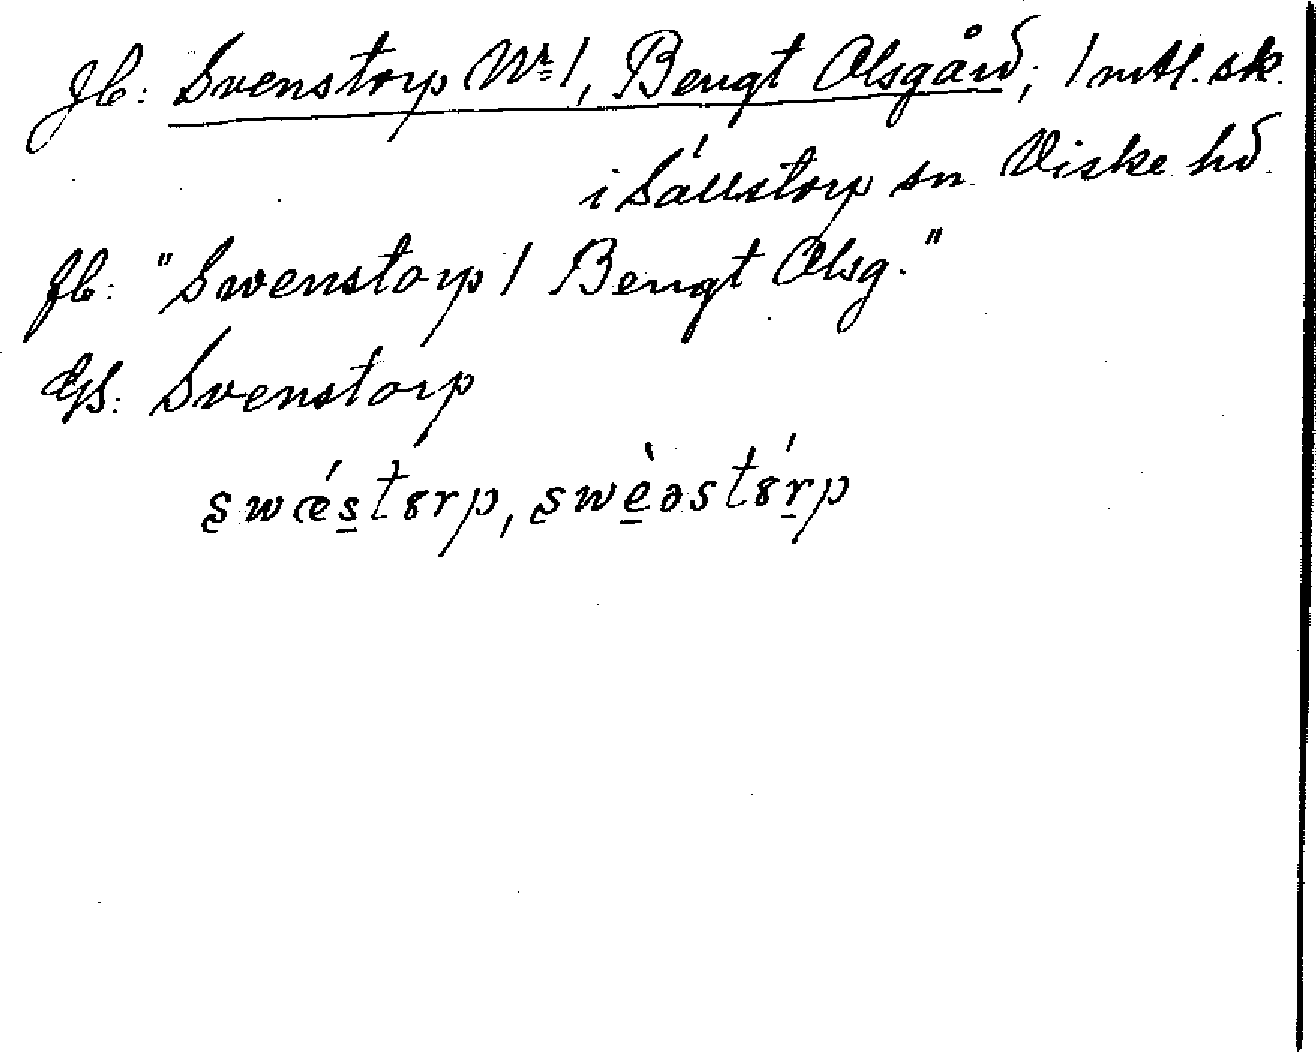 Jb: Svenstorp Nr 1, Bengt Olsgård; 1 mtl. sk.
i Sällstorp sn Viske hd.
fb: "Swenstorp 1 Bengt Olsg."
GS: Svenstorp
swǽstɤrp, swèəstɤ́rp